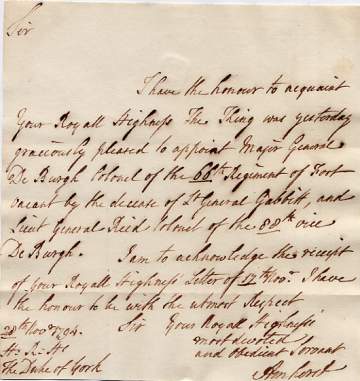 Sir
I have the honour to acquaint
Your Royall Highness The King was yesterday
graciously pleased to appoint Major General
De Burgh Colonel of the 66th Regiment of Foot
vacant by the decease of Lt General Gabbitt, and
Lieut General Reid Colonel of the 88th vice
De Burgh. I am to acknowledge the receipt
of Your Royall Highness' Letter of 17th Novr. I have
the honour to be with the utmost Respect
Sir Your Royall Highness'
most devoted
and Obedient Servant
28th Novr 1794.
H: R: Hs
The Duke of York